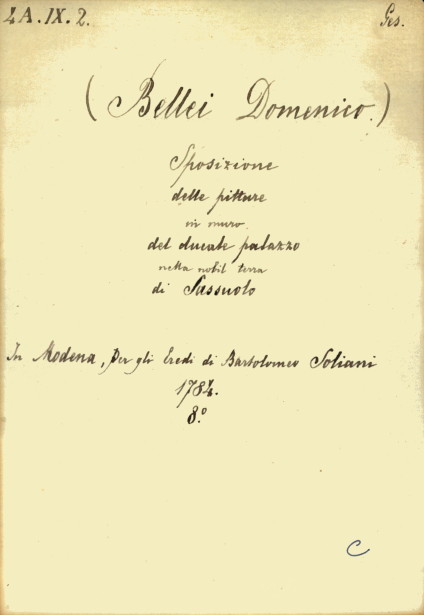 4A.IX.2. Ges.
(Bellei Domenico.)
Sposizione
delle pitture
in muro
del ducale palazzo
nella nobil terra
di Sassuolo
In Modena, Per gli Eredi di Bartolomeo Soliani
1784.
8.º
C